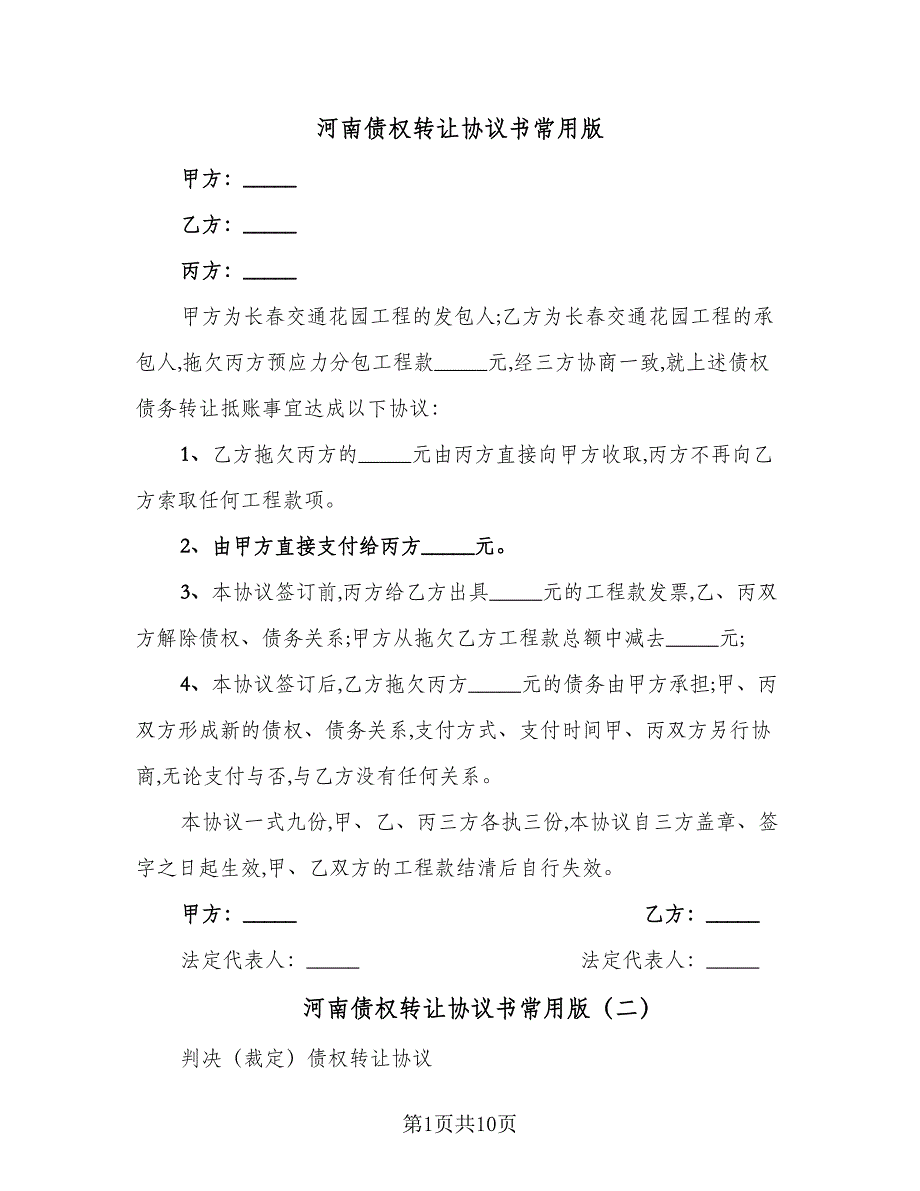 河南债权转让协议书常用版
甲方：_____
乙方：_____
丙方：_____
甲方为长春交通花园工程的发包人;乙方为长春交通花园工程的承
包人,拖欠丙方预应力分包工程款_____元,经三方协商一致,就上述债权
债务转让抵账事宜达成以下协议：
1、乙方拖欠丙方的_____元由丙方直接向甲方收取,丙方不再向乙
方索取任何工程款项。
2、由甲方直接支付给丙方_____元。
3、本协议签订前,丙方给乙方出具_____元的工程款发票,乙、丙双
方解除债权、债务关系;甲方从拖欠乙方工程款总额中减去_____元;
4、本协议签订后,乙方拖欠丙方_____元的债务由甲方承担;甲、丙
双方形成新的债权、债务关系,支付方式、支付时间甲、丙双方另行协
商,无论支付与否,与乙方没有任何关系。
本协议一式九份,甲、乙、丙三方各执三份,本协议自三方盖章、签
字之日起生效,甲、乙双方的工程款结清后自行失效。
甲方：_____ 乙方：_____
法定代表人：_____ 法定代表人：_____
河南债权转让协议书常用版（二）
判决（裁定）债权转让协议
第1页共10页